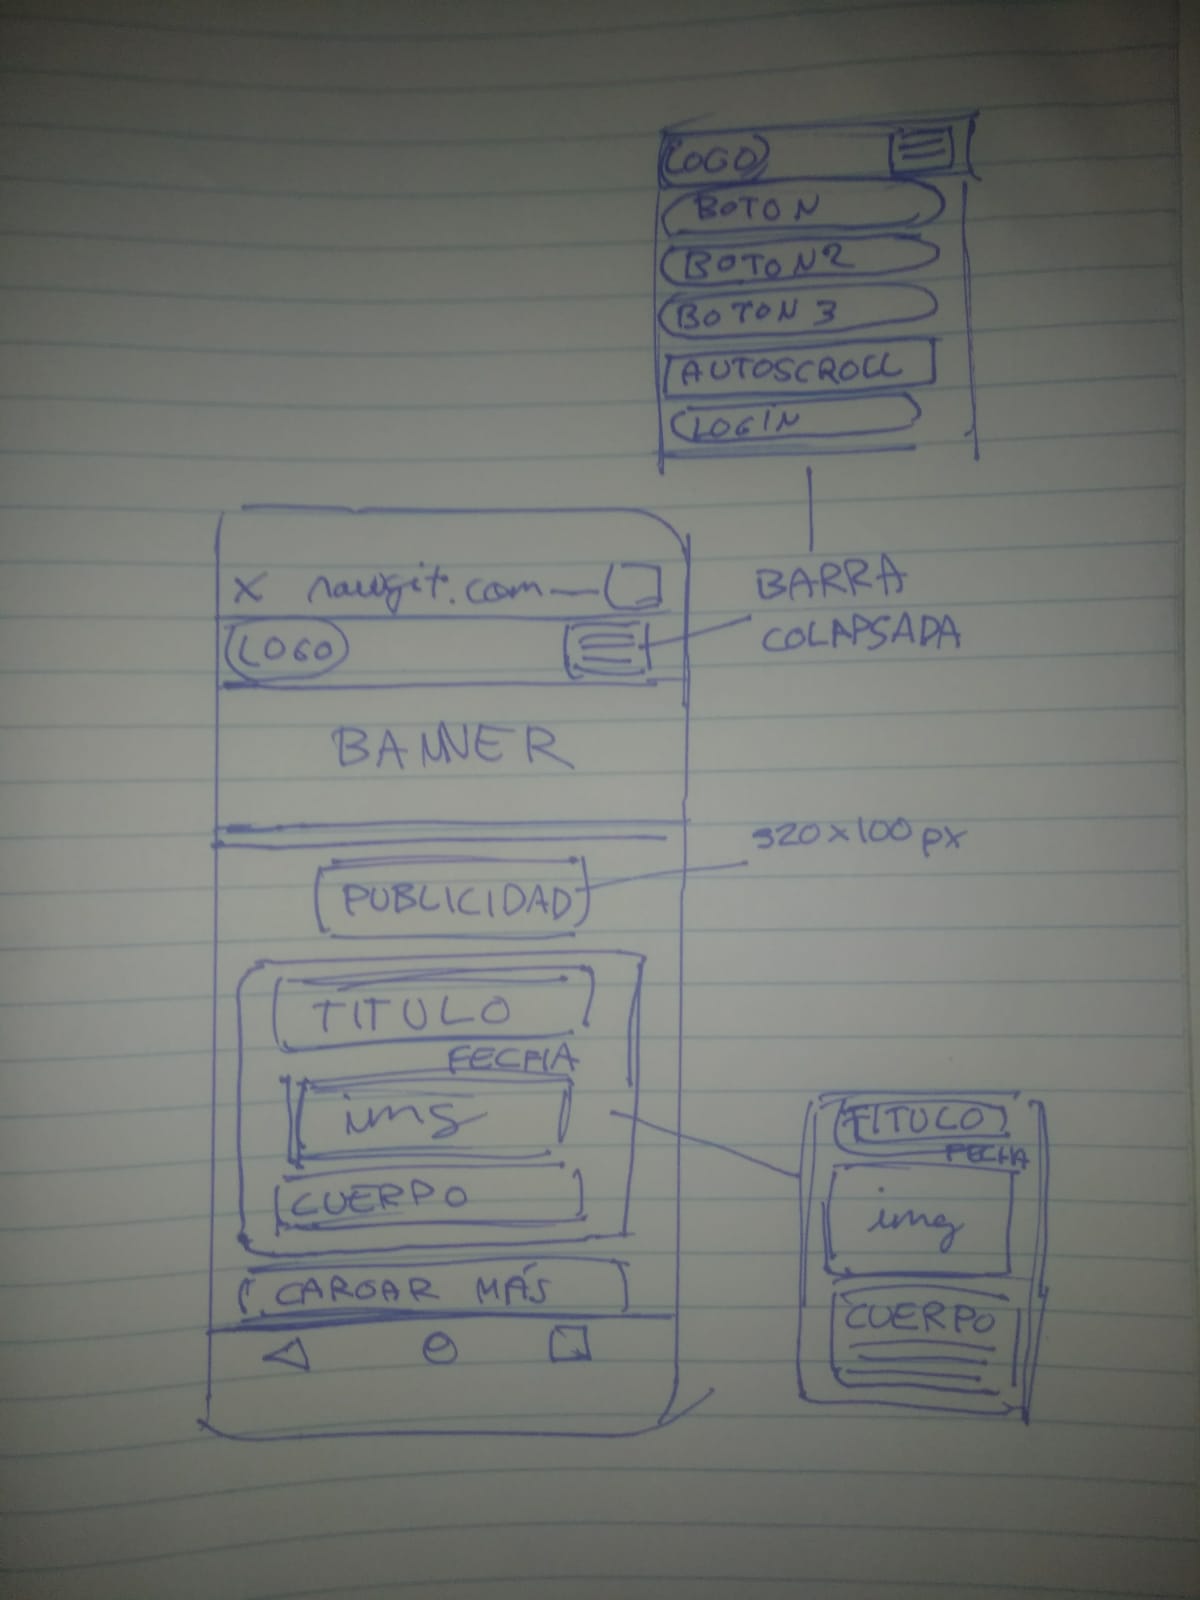 LOGO
BOTON
BOTON2
BOTON 3
AUTOSCROLL
LOGIN
BARRA
COLAPSADA
X rawgit.com
LOGO
BANNER
320x100px
PUBLICIDAD
TITULO
FECHA
img
CUERPO
CARGAR MÁS
TITULO
FECHA
img
CUERPO